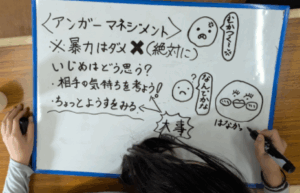 〈アンガーマネジメント〉
※暴力はダメ✖(絶対に)
いじめはどう思う?
・相手の気持ちを考よう!
・ちょっとようすをみる。
大事
むかつく〜
なんでかな
?
はなす。